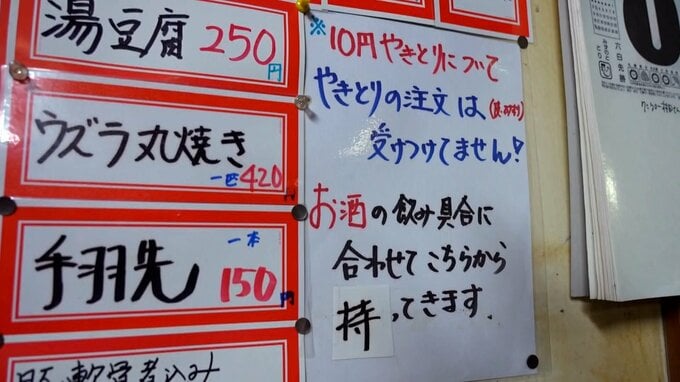 湯豆腐 250円
ウズラ丸焼き
一匹 420円
手羽先
一本
150円
軟骨煮込み
※10円やきとりについて
やきとりの注文は
受けつけてません!
お酒の飲み具合に
合わせてこちらから
持ってきます。
六白先勝